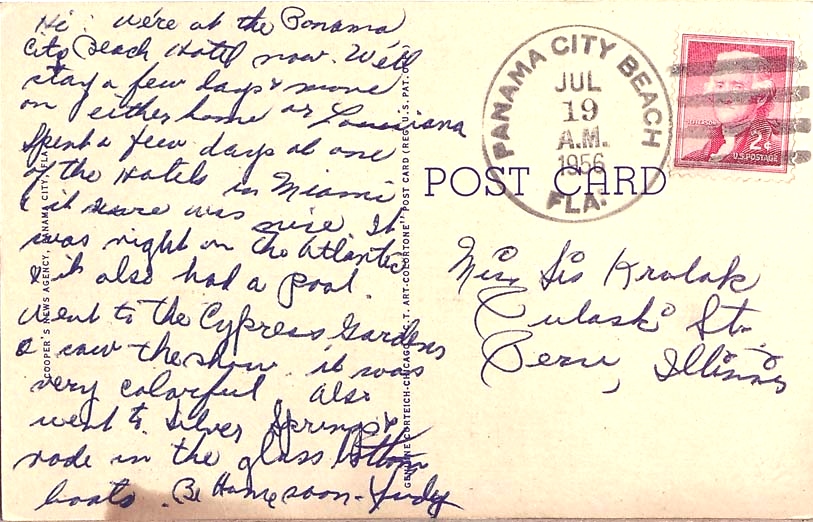 Hi: we're at the Panama
City Beach Hotel now. We'll
stay a few days & move
on either home or Louisiana
Spent a few days at one
of the Hotels in Miami
& it sure was nice It
was right on the Atlantic
& it also had a pool.
Went to the Cypress Gardens
& saw the show. it was
very colorful. Also
went to Silver Springs &
rode in the glass bottom
boats. Be Home soon - Judy
COOPER'S NEWS AGENCY, PANAMA CITY, FLA.
GENUINE CURTEICH-CHICAGO "C.T. ART-COLORTONE" POST CARD (REG. U.S. PAT. OFF.)
POST CARD
PANAMA CITY BEACH
JUL
19
A.M.
1956
FLA.
JEFFERSON
2¢
U.S. POSTAGE
Miss Sis Krolak
Pulaski St.
Peru, Illinois